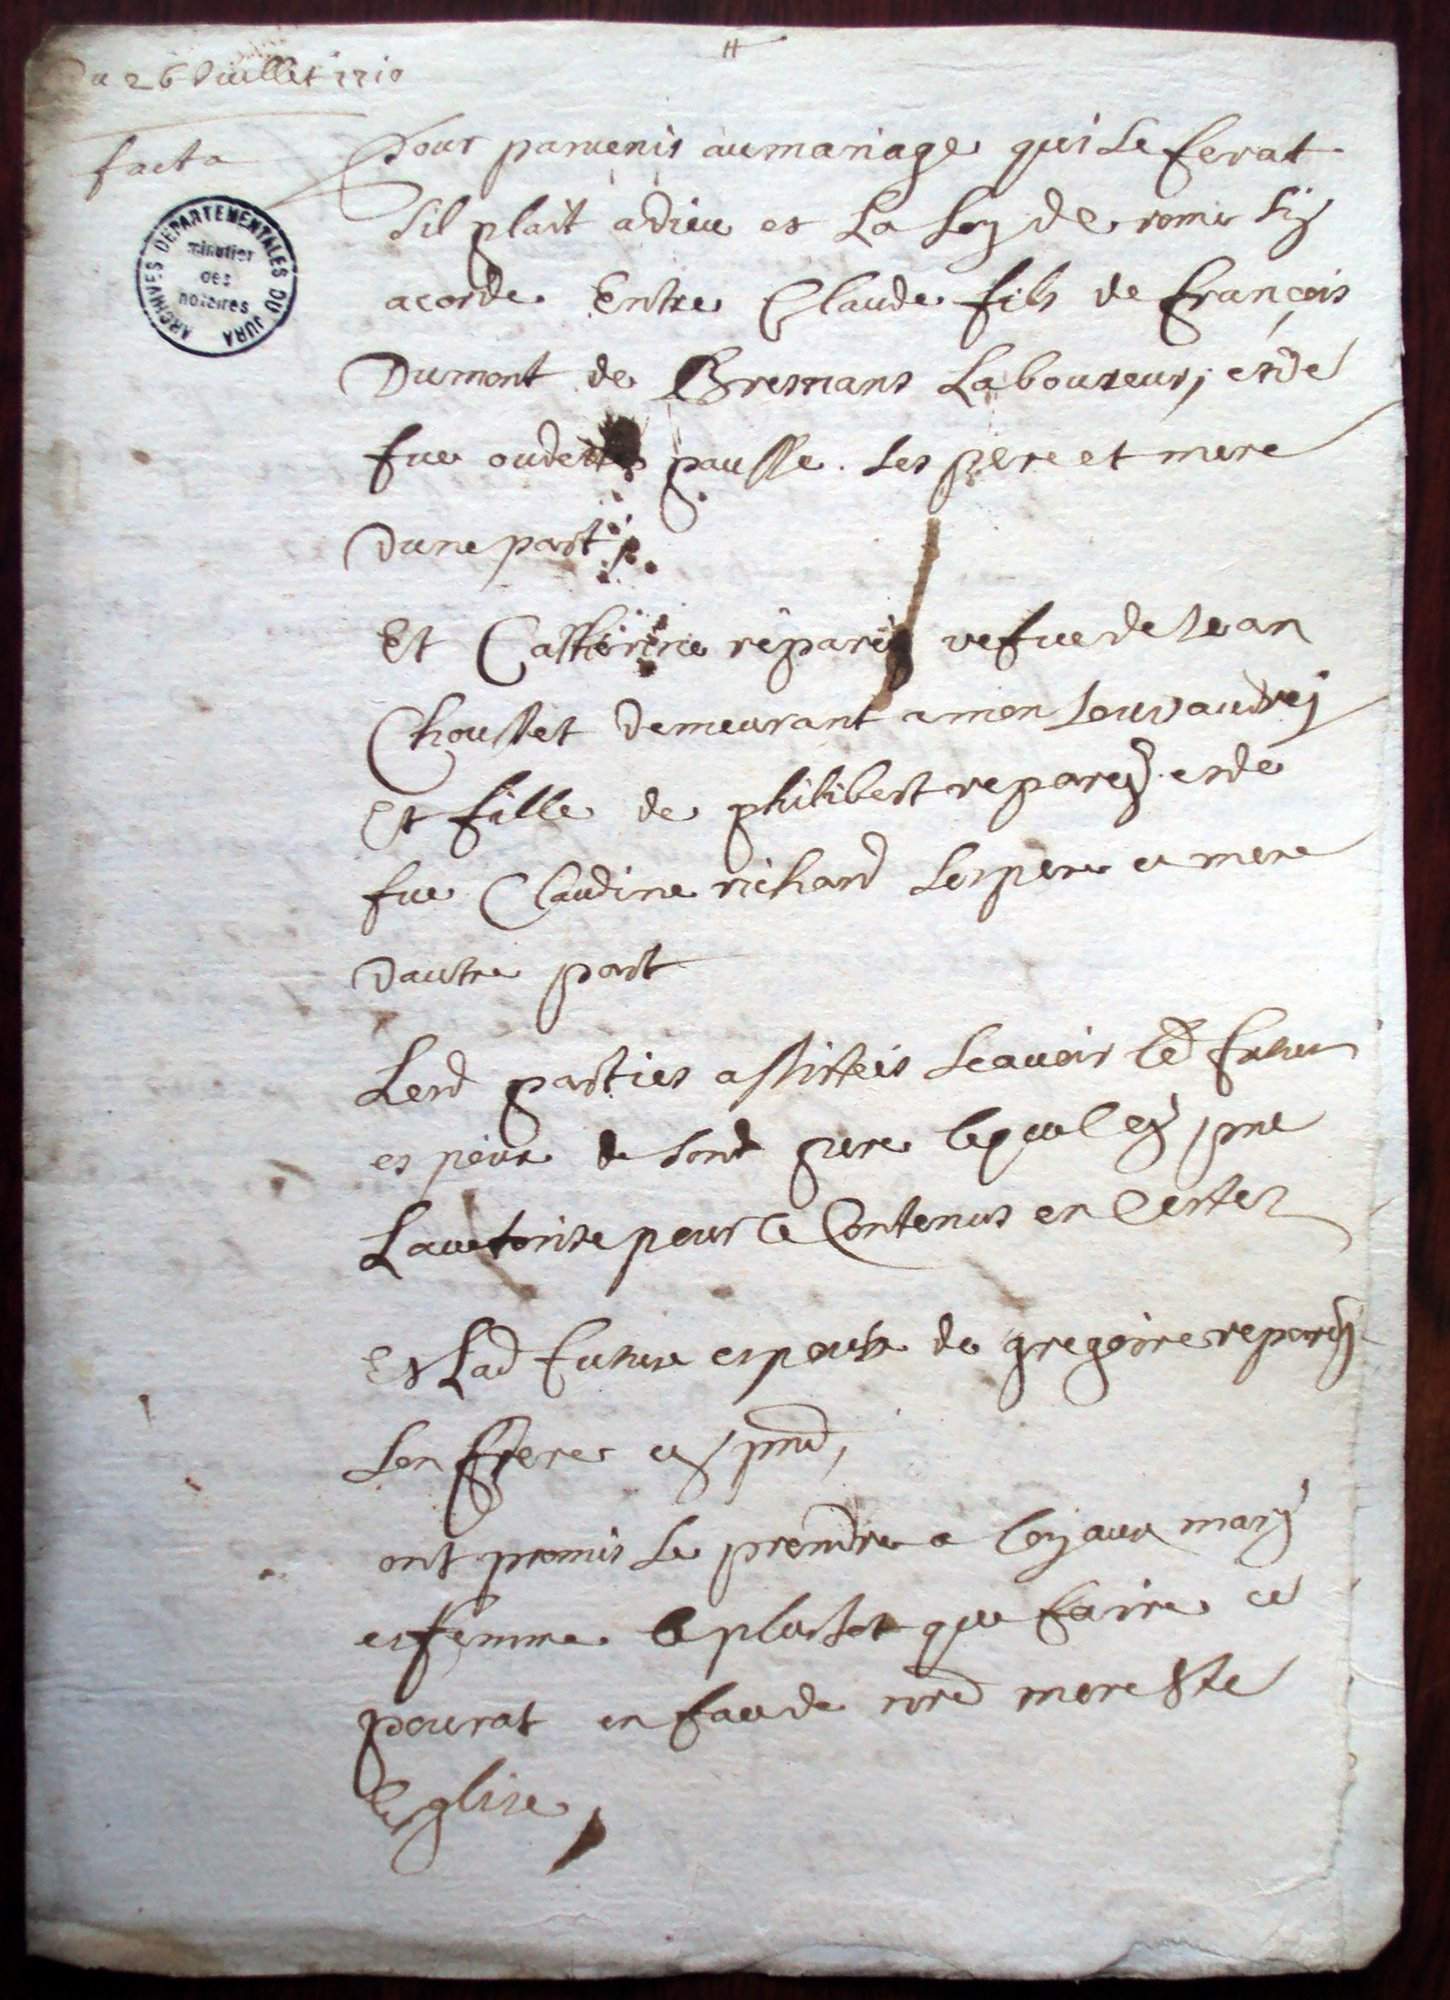 Du 26 Juillet 1710
facta
Pour paruenir au mariage qui se ferat
sil plait a dieu et la ste de rome sy
acorde Entre Claude fils de françois
Dumont de Bresnans Laboureur, et de
fue oudette pausse ses pere et mere
Dune part
Et Catherine reparey vefue de Jean
Choullet demeurant a mon sous vaudrej
Et fille de philibert reparey et de
fue Claudine richard ses pere et mere
Dautre part
Lesd parties assisteis scauoir led futur
espoux de sond pere lequel ey pnt
Lauctorise pour le Contenus en Cestes
Et Lad future espouse de gregoire reparey
son frere cy pnt,
ont promis se prendre a loyaux mary
et femme le plustot que faire ce
pourat en face de nred mere Ste
Esglise,
ARCHIVES DEPARTEMENTALES DU JURA
minutier
des
notaires